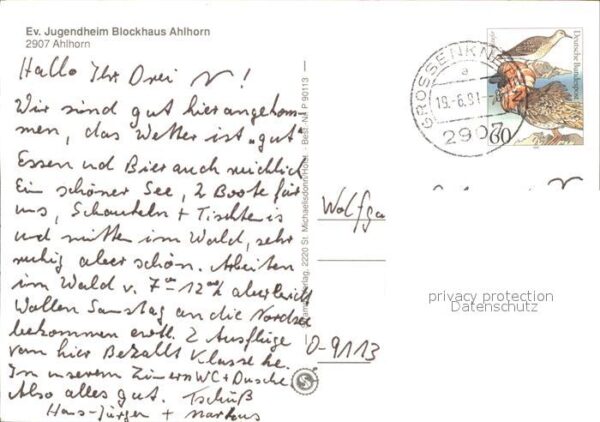 Ev. Jugendheim Blockhaus Ahlhorn
2907 Ahlhorn
Hallo Ihr Drei !
Wir sind gut hier angekom-
men, das Wetter ist "gut"
Essen und Bier auch reichlich
Ein schöner See, 2 Boote für
uns, Schaukeln + Tischtennis
und mitten im Wald, sehr
ruhig aber schön. Arbeiten
im Wald v. 7 00 - 12 00 h aber leicht
Wollen Samstag an die Nordsee
bekommen evtl. 2 Ausflüge
von hier Bezahlt Klasse he.
In unserem Zimmern WC + Dusche
Also alles gut. Tschüß
Hans-Jürgen + Markus
2220 St. Michaelisdonn/Holst. · Best.-Nr. P 90113
GROSSENKNE
a
19.-6.91
2907
Deutsche Bundespost
60
Wolfga
O-9113
privacy protection
Datenschutz